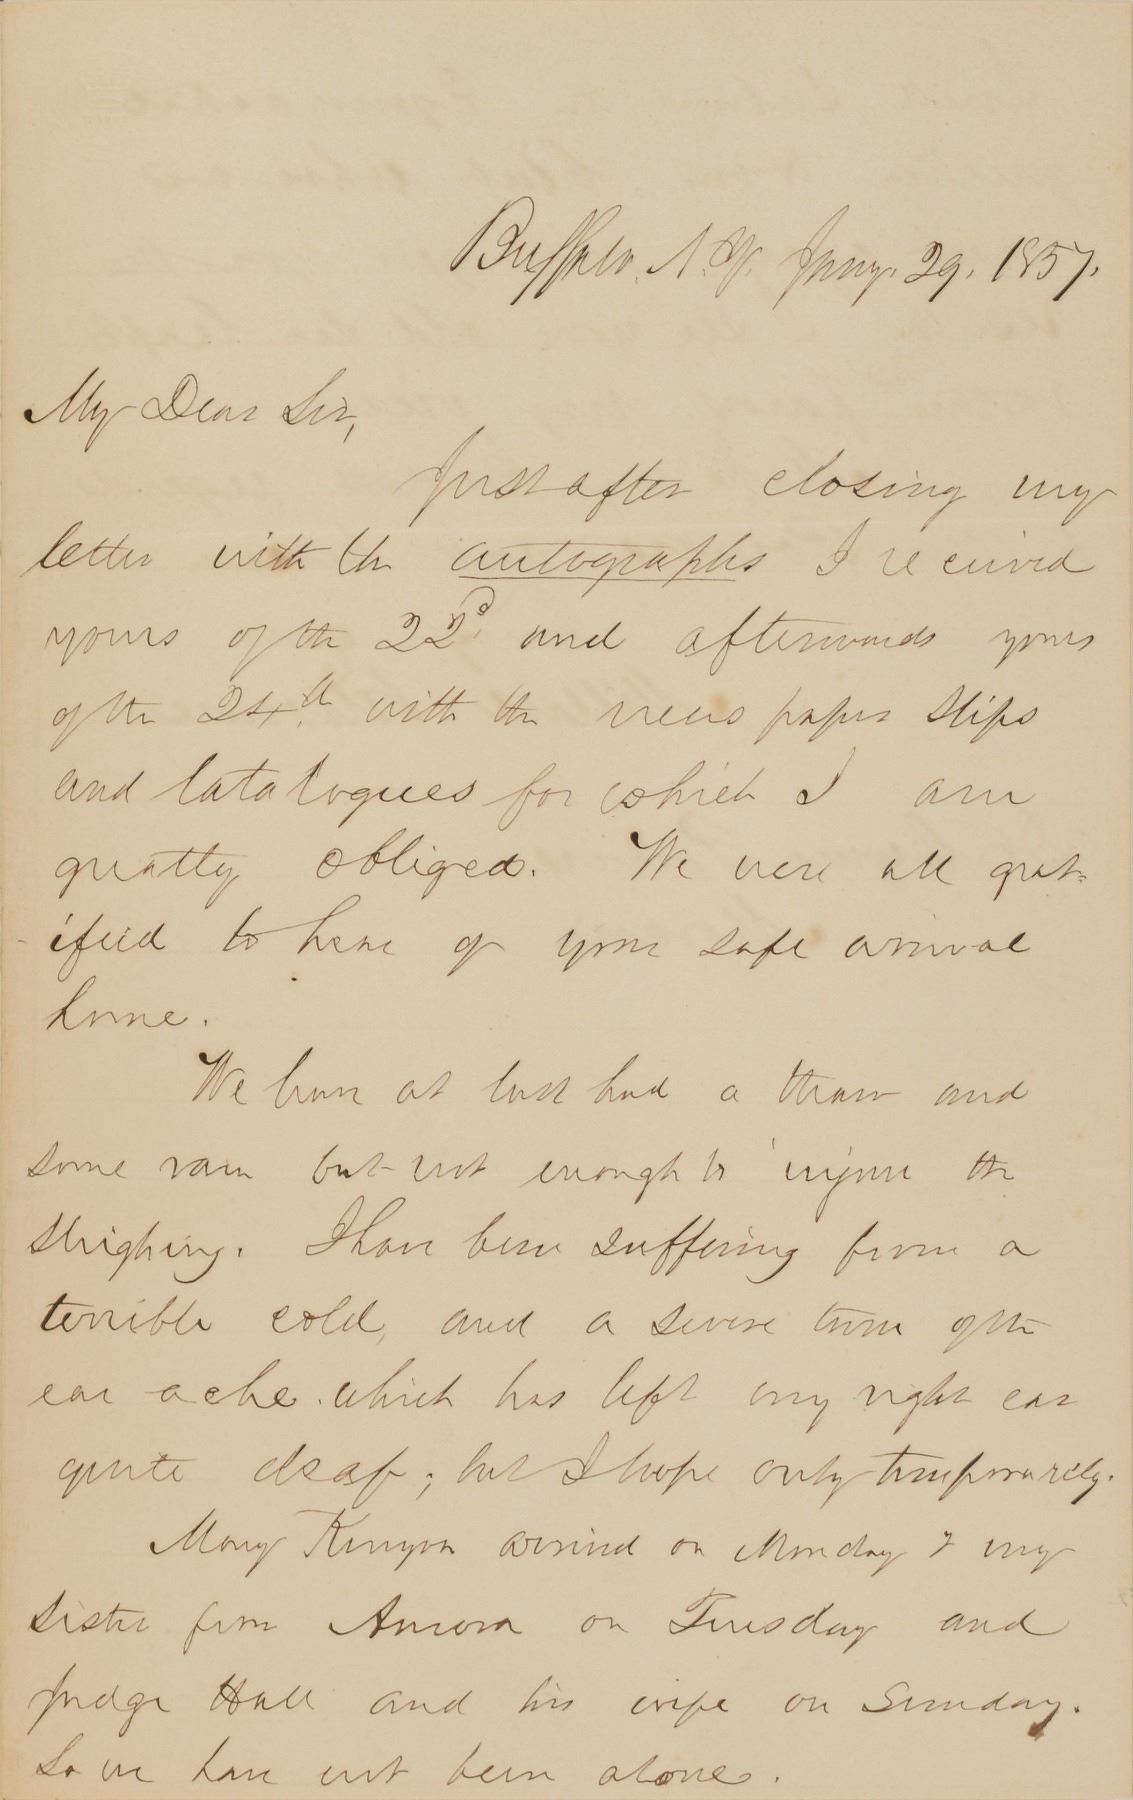 Buffalo, N.Y. Jany. 29. 1857.
My Dear Sir,
Just after closing my
letter with the autographs I received
yours of the 22d. and afterwards yours
of the 24th. with the news paper slips
and Catalogues for which I am
greatly obliged. We were all grat=
ified to hear of your safe arrival
home.
We have at last had a thaw and
some rain but not enough to injure the
sleighing. I have been suffering from a
terrible cold, and a severe turn of the
ear ache which has left my right ear
quite deaf; but I hope only temporarily.
Mary Kenyon arrived on Monday & my
sister from Aurora on Tuesday and
Judge Hall and his wife on Sunday.
So we have not been alone.